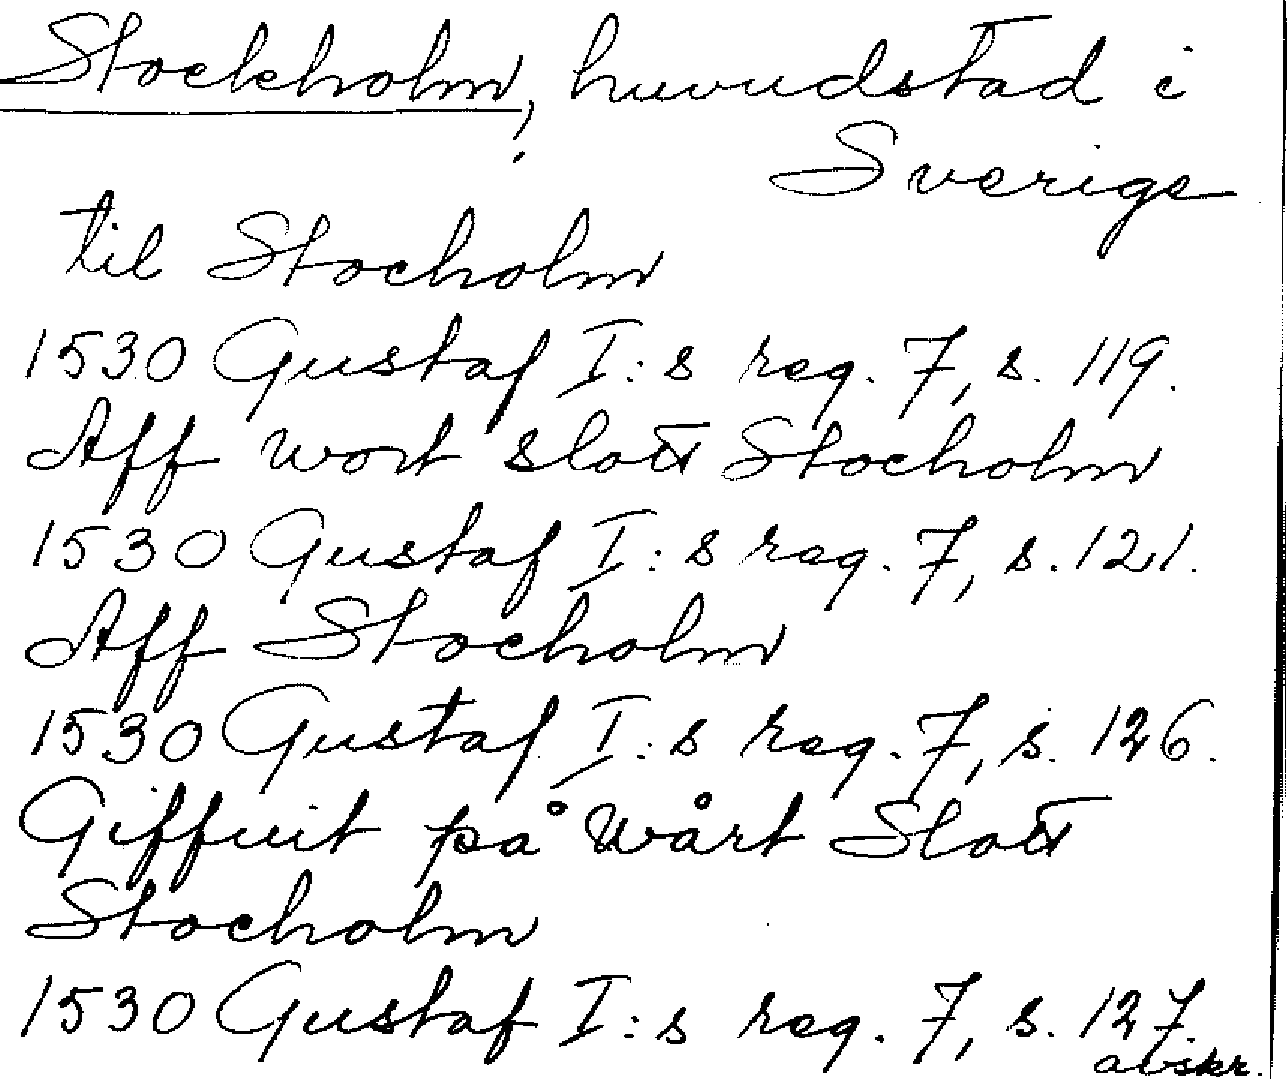 Stockholm, huvudstad i
Sverige
til Stocholm
1530 Gustaf I:s reg. 7, s. 119.
Aff wort slott Stocholm
1530 Gustaf I:s reg. 7, s. 121.
Aff Stocholm
1530 Gustaf I:s reg. 7, s. 126.
Giffuit på wårt Slott
Stocholm
1530 Gustaf I:s reg. 7, s. 127.
avskr.